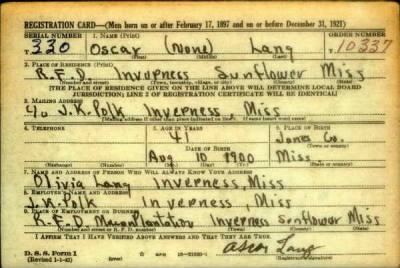 REGISTRATION CARD—(Men born on or after February 17, 1897 and on or before December 31, 1921)
SERIAL NUMBER 1. NAME (Print) ORDER NUMBER
T 330 Oscar (none) Lang 10337
(First) (Middle) (Last)
2. PLACE OF RESIDENCE (Print)
R.F.D Inverness Sunflower Miss
(Number and street) (Town, township, village, or city) (County) (State)
[THE PLACE OF RESIDENCE GIVEN ON THE LINE ABOVE WILL DETERMINE LOCAL BOARD
JURISDICTION; LINE 2 OF REGISTRATION CERTIFICATE WILL BE IDENTICAL]
3. MAILING ADDRESS
% J.K. Polk Inverness, Miss
(Mailing address if other than place indicated on line 2. If same insert word same)
4. TELEPHONE 5. AGE IN YEARS 6. PLACE OF BIRTH
41 Jones Co.
DATE OF BIRTH (Town or county)
Aug 10 1900 Miss
(Exchange) (Number) (Mo.) (Day) (Yr.) (State or country)
7. NAME AND ADDRESS OF PERSON WHO WILL ALWAYS KNOW YOUR ADDRESS
Olivia Lang Inverness, Miss
8. EMPLOYER'S NAME AND ADDRESS
J.K. Polk Inverness, Miss
9. PLACE OF EMPLOYMENT OR BUSINESS
R.F.D. Plantation Inverness Sunflower Miss
(Number and street or R. F. D. number) (Town) (County) (State)
I AFFIRM THAT I HAVE VERIFIED ABOVE ANSWERS AND THAT THEY ARE TRUE.
D. S. S. Form 1
(Revised 1-1-42) (over)
Oscar Lang
(Registrant's signature)